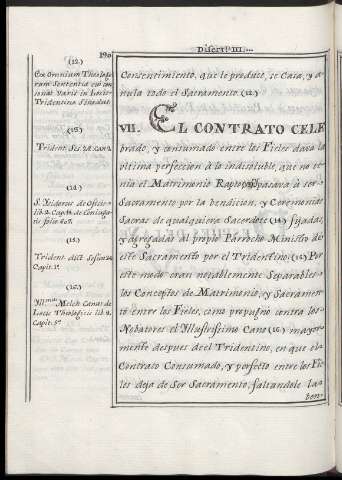 190
Disert.ⁿ III....
(12.)
Ex omnium Theologo
rum Sententia eis con
Tridentina Sinodus.
(13.)
Trident. Ses. 24. can. 2.
(14.)
S. Isidorus de Oficiis
lib. 2. Cap.
folio 407.
(15.)
Trident. dict. Sesion 24
Capit. 1.º
(16.)
Ill.mus Melch. Canus de
Locis Theologicis lib. 8.
Capit. 5.º
Consentimiento, que le produce, se Casa, y a-
nula todo el Sacramento (12.)
VII. EL CONTRATO CELE
brado, y consumado entre los Fieles dava la
ultima perfeccion à lo indisoluble, que no te
nia el Matrimonio Rapto, pasava à ser
Sacramento por la bendicion, y Ceremonias
Sacras de qualquiera Sacerdote (14.) fijadas,
y agregadas al propio Parrocho Ministro de
este Sacramento por el Tridentino (15.) Por
este modo eran notablemente Separables
los Conceptos de Matrimonio, y Sacramen
tò entre los Fieles, como propugno contra los
Nobatores el Yllustrisimo Cano (16.) y mayor
mente despues de el Tridentino, en que el
Contrato Consumado, y perfecto entre los Fie
les deja de Ser Sacramento, faltandole la
ben-